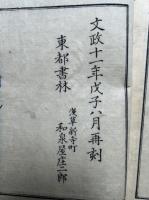 文政十一年戊子八月再刻
東都書林
淺草新寺町
和泉屋庄二郎